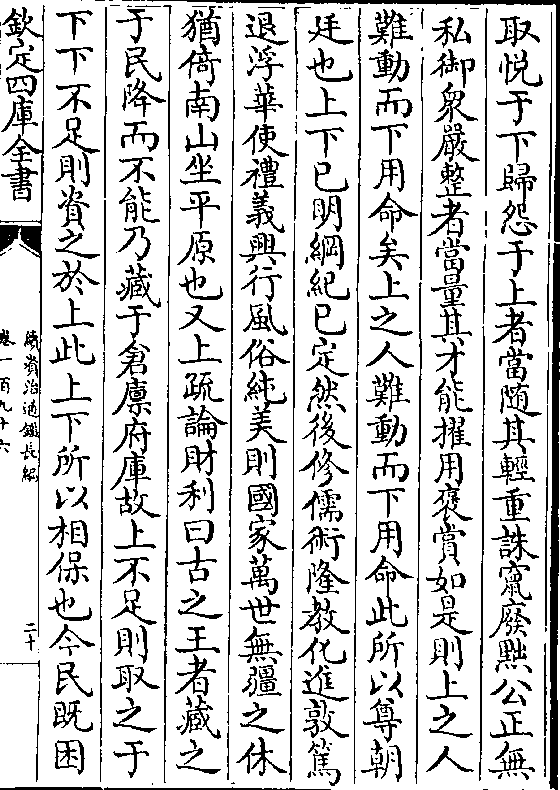 取悦于下歸怨于上者當随其輕重誅竄廢黜公正無
私御衆嚴整者當量其才能擢用褒賞如是則上之人
難動而下用命矣上之人難動而下用命此所以尊朝
廷也上下已明綱紀已定然後修儒術隆教化進敦篤
退浮華使禮義興行風俗純美則國家萬世無疆之休
猶倚南山坐平原也又上疏論財利曰古之王者藏之
于民降而不能乃藏于倉廪府庫故上不足則取之于
下下不足則資之於上此上下所以相保也今民既困
欽定四庫全書
續資治通鑑長編
卷一百九十六
二十